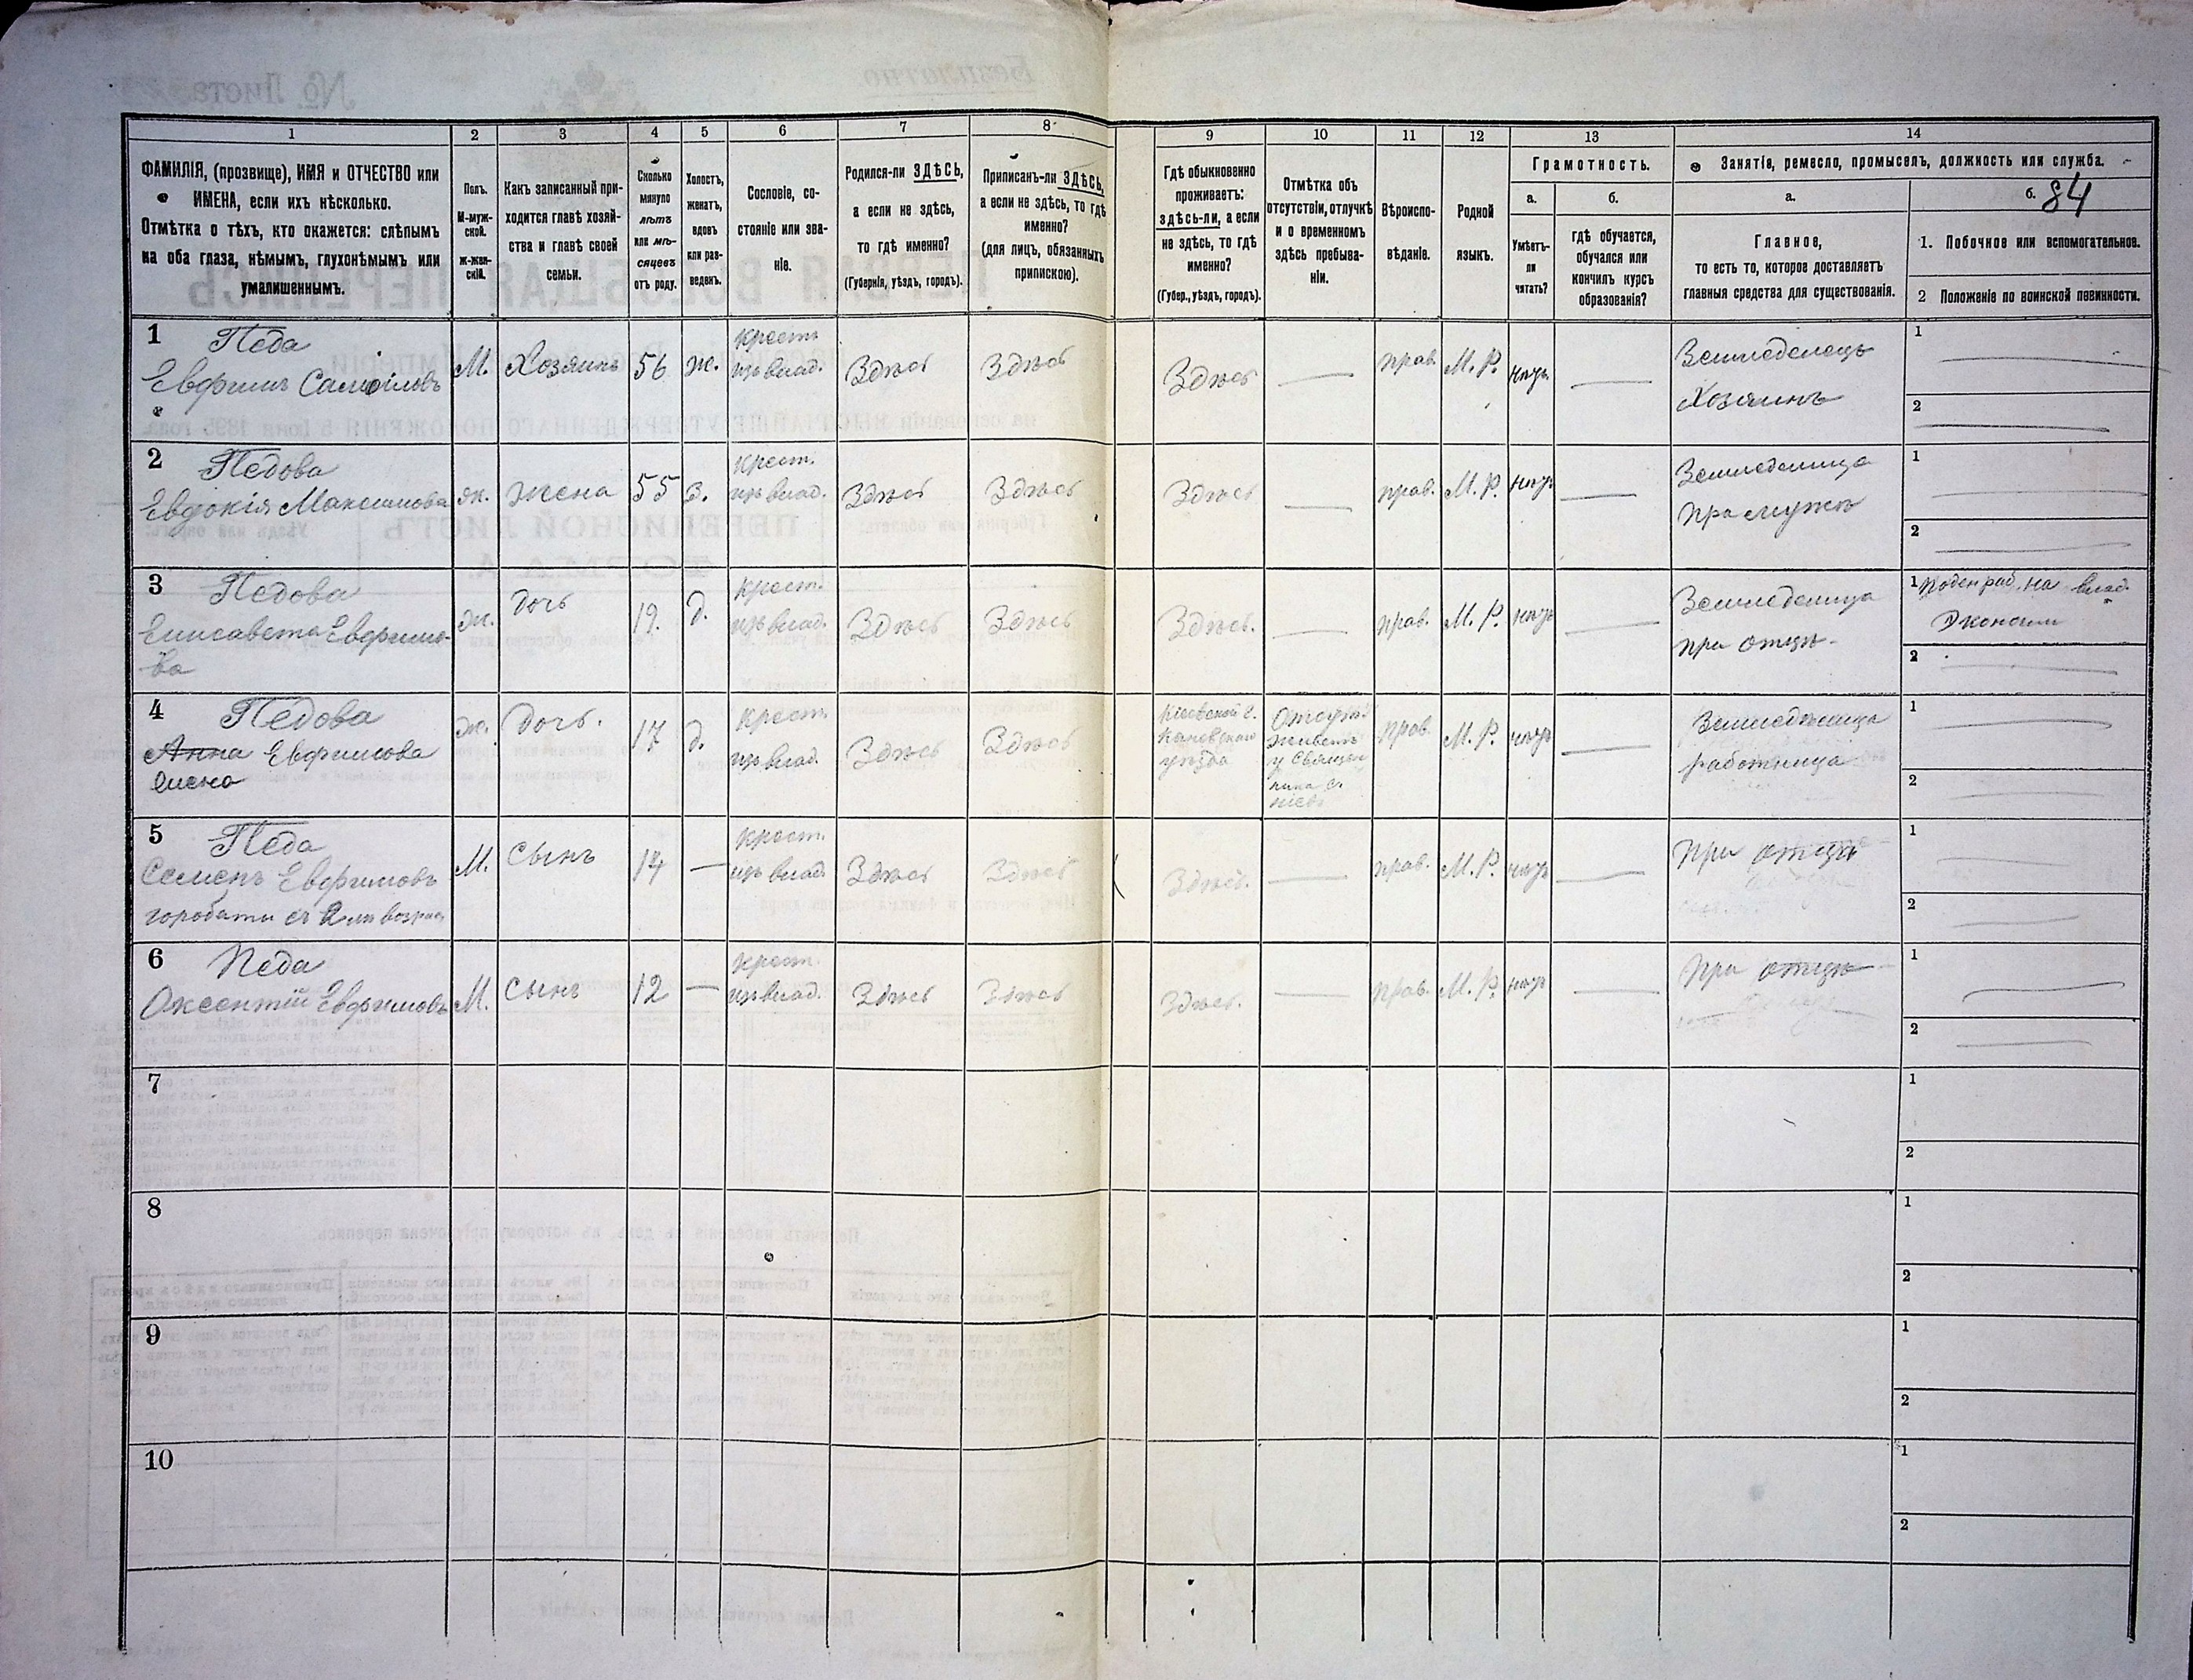 84
1 2 3 4 5 6 7 8 9 10 11 12 13 14
ФАМИЛІЯ, (прозвище), ИМЯ и ОТЧЕСТВО или
ИМЕНА, если ихъ нѣсколько.
Отмѣтка о тѣхъ, кто окажется: слѣпымъ
на оба глаза, нѣмымъ, глухонѣмымъ или
умалишеннымъ.
Полъ.
М-муж-
ской.
ж-жен-
скій.
Какъ записанный при-
ходится главѣ хозяй-
ства и главѣ своей
семьи.
Сколько
минуло
лѣтъ
или мѣ-
сяцевъ
отъ роду.
Холостъ,
женатъ,
вдовъ
или раз-
веденъ.
Сословіе, со-
стояніе или зва-
ніе.
Родился-ли ЗДѢСЬ,
а если не здѣсь,
то гдѣ именно?
(Губернія, уѣздъ, городъ).
Приписанъ-ли ЗДѢСЬ,
а если не здѣсь, то гдѣ
именно?
(для лицъ, обязанныхъ
припискою).
Гдѣ обыкновенно
проживаетъ:
здѣсь-ли, а если
не здѣсь, то гдѣ
именно?
(Губер., уѣздъ, городъ).
Отмѣтка объ
отсутствіи, отлучкѣ
и о временномъ
здѣсь пребыва-
ніи.
Вѣроиспо-
вѣданіе.
Родной
языкъ.
Грамотность.
а.
Умѣетъ-
ли
читать?
б.
гдѣ обучается,
обучался или
кончилъ курсъ
образованія?
Занятіе, ремесло, промыселъ, должность или служба.
а.
Главное,
то есть то, которое доставляетъ
главныя средства для существованія.
б.
1. Побочное или вспомогательное.
2 Положеніе по воинской повинности.
1
Педа
Евфимъ Самойловъ
М.
Хозяинъ
56
ж.
крестъ
изъ влад.
Здѣсь
Здѣсь
Здѣсь
—
прав.
М. Р.
нѣтъ
—
Земледелецъ
Хозяинъ
1
2
2
Педова
Евдокія Максимова
ж.
жена
55
з.
крест.
изъ влад.
Здѣсь
Здѣсь
Здѣсь
—
прав.
М. Р.
нѣтъ
—
Земледелица
при мужѣ
1
2
3
Педова
Елисавета Евфимо-
ва
ж.
дочь
19.
д.
крест.
изъ влад.
Здѣсь
Здѣсь
Здѣсь.
—
прав.
М. Р.
нѣтъ
—
Земледелица
при отцѣ
1 Поден раб. на влад.
Экономіи
2
4
Педова
Анна Евфимова
Олена
ж.
дочь.
17
д.
крест.
изъ влад.
Здѣсь
Здѣсь
Кіевской г.
Каневскаго
уѣзда
живетъ
у Священ
ника с.
прав.
М. Р.
нѣтъ
—
Земледѣлица
работница
1
2
5
Педа
Семенъ Евфимовъ
горбаты съ 2 лѣ возрас
М.
сынъ
14
—
крест.
изъ влад.
Здѣсь
Здѣсь
Здѣсь.
—
прав.
М. Р.
нѣтъ
—
При отцѣ
1
2
6
Педа
Оксентій Евфимовъ
М.
сынъ
12
—
крест.
изъ влад.
Здѣсь
Здѣсь
Здѣсь.
—
прав.
М. Р.
нѣтъ
—
При отцѣ
1
2
7
1
2
8
1
2
9
1
2
10
1
2